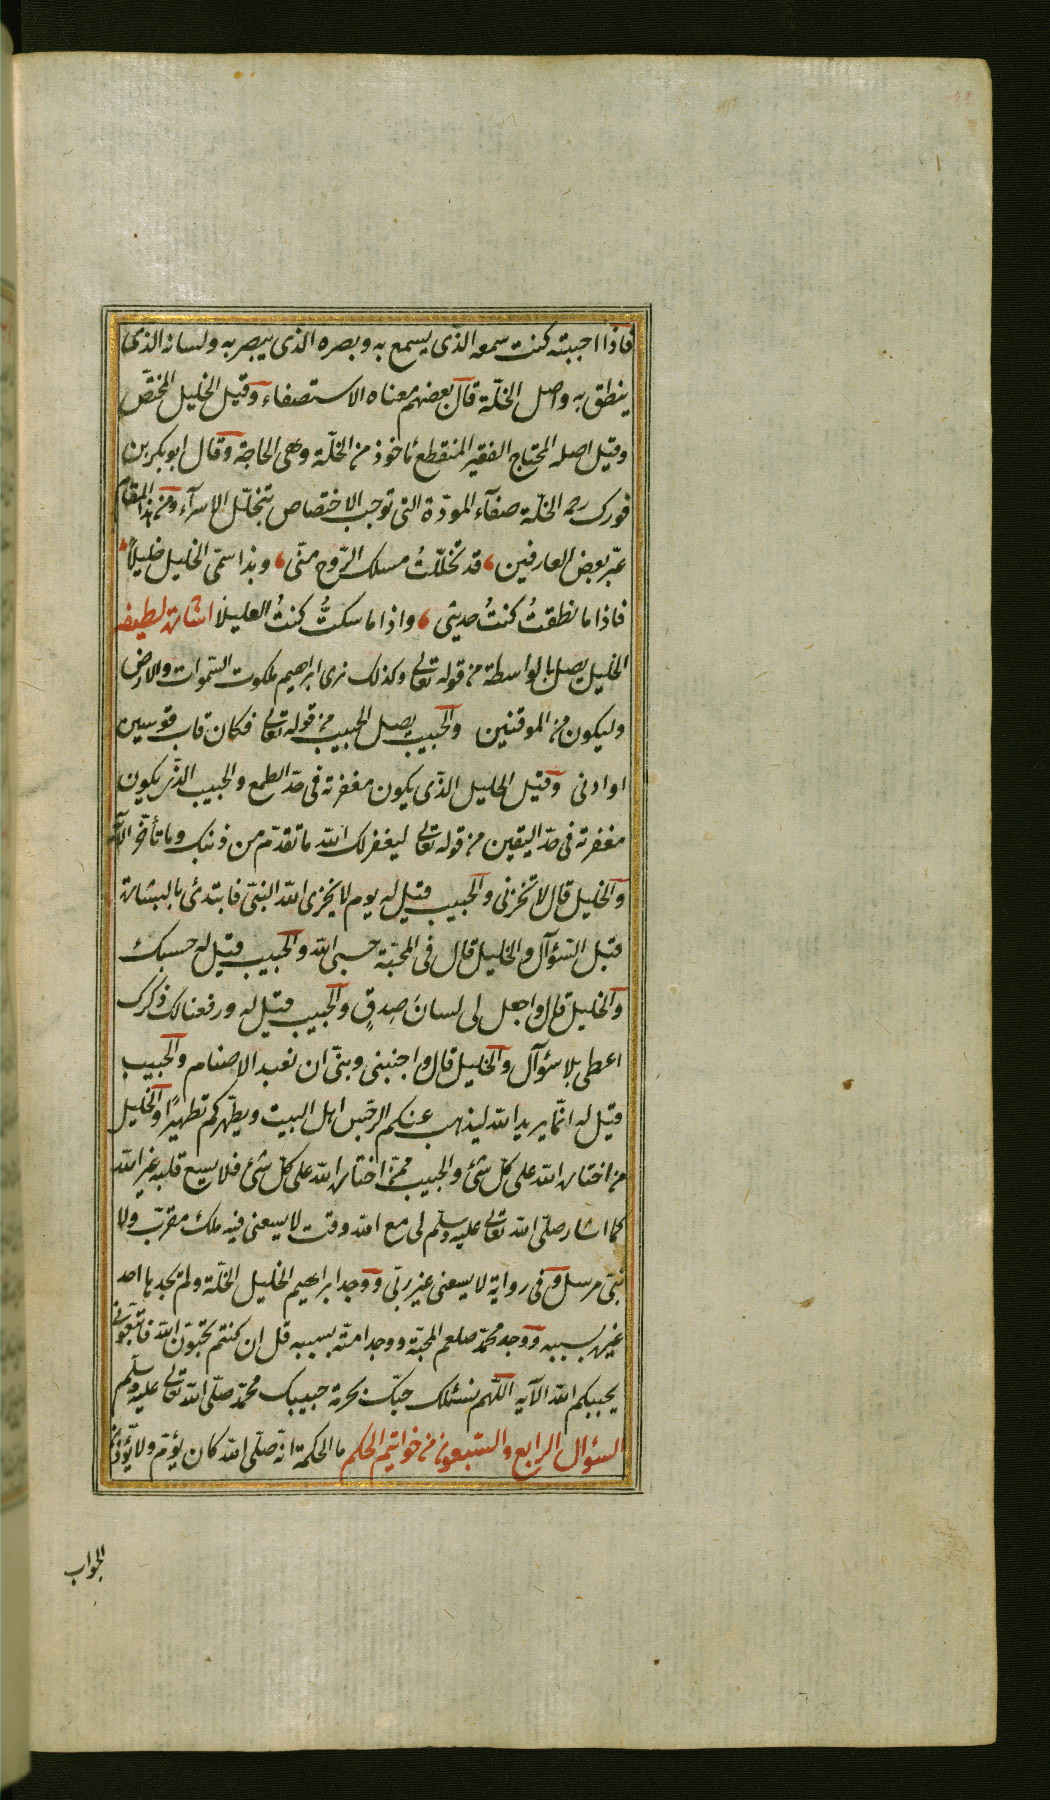 فاذا احببته كنت سمعه الذى يسمع به وبصره الذى يبصر به ولسانه الذى
ينطق به واصل الخلّة قال بعضهم معناه الاستصفاء وقيل الخليل المختصّ
وقيل اصله المحتاج الفقير المنقطع مأخوذ من الخلّة وهى الحاجة وقال ابو بكر بن
فورك رحمه الخلّة صفآء المودّة التى توجب الاختصاص بتخلّل الاسرآء ومن هذا المقام
عبّر بعض العارفين ، قد تخلّلتُ مسلك الرّوح منّى ، وبذا سمّى الخليل خليلاً
فاذا ما نطقتُ كنتُ حديثى ، واذا ما سكتُّ كنتُ العليلا اشارة لطيفه
الخليل يصل بالواسطة من قوله تعالى وكذلك نرى ابراهيم ملكوت السّموات والارض
وليكون من الموقنين والحبيب يصل الحبيب من قوله تعالى فكان قاب قوسين
او ادنى وقيل الخليل الذّى يكون مغفرته فى حدّ الطمع والحبيب الذّى يكون
مغفرته فى حدّ اليقين من قوله تعالى ليغفر لك الله ما تقدّم من ذنبك وما تأخّر الآية
والخليل قال لا تخزنى والحبيب قيل له يوم لا يخزى الله النبّى فابتدئ بالبشارة
قبل السّؤآل والخليل قال فى المحبّة حسبى الله والحبيب قيل له حسبك
والخليل قال واجعل لى لسان صِدقٍ والحبيب قيل له ورفعنا لك ذكرك
اعطى بلا سؤآل والخليل قال واجنبنى وبنىّ ان نعبد الاصنام والحبيب
قيل له انمّا يريد الله ليذهب عنكم الرّجس اهل البيت ويطّهركم تطهيرًا والخليل
من اختار الله على كلّ شئ والحبيب ممّن اختار الله على كلّ شئ فلا يسع قلبه غير الله
كما اشار صلّى الله تعالى عليه وسلّم لى مع الله وقت لا يسعنى فيه ملك مقرّب ولا
نبّى مرسل وفى رواية لا يسعنى غير ربّى ووجد ابراهيم الخليل الخلّة ولم يجد بها احد
غيره بسببه ووجد محمّد صلعم المحبّة ووجد امتّه بسببه قل ان كنتم تحبّون الله فاتبعونى
يحببكم الله الآيه اللّهم نسئلك حبّك بحرمة حبيبك محمّد صلّى الله تعالى عليه وسلّم
السؤال الرابع والسّبعون من خواتيم الحكم ما الحكمة انّه صلّى الله كان يؤمّ ولا يؤذّن
الجواب